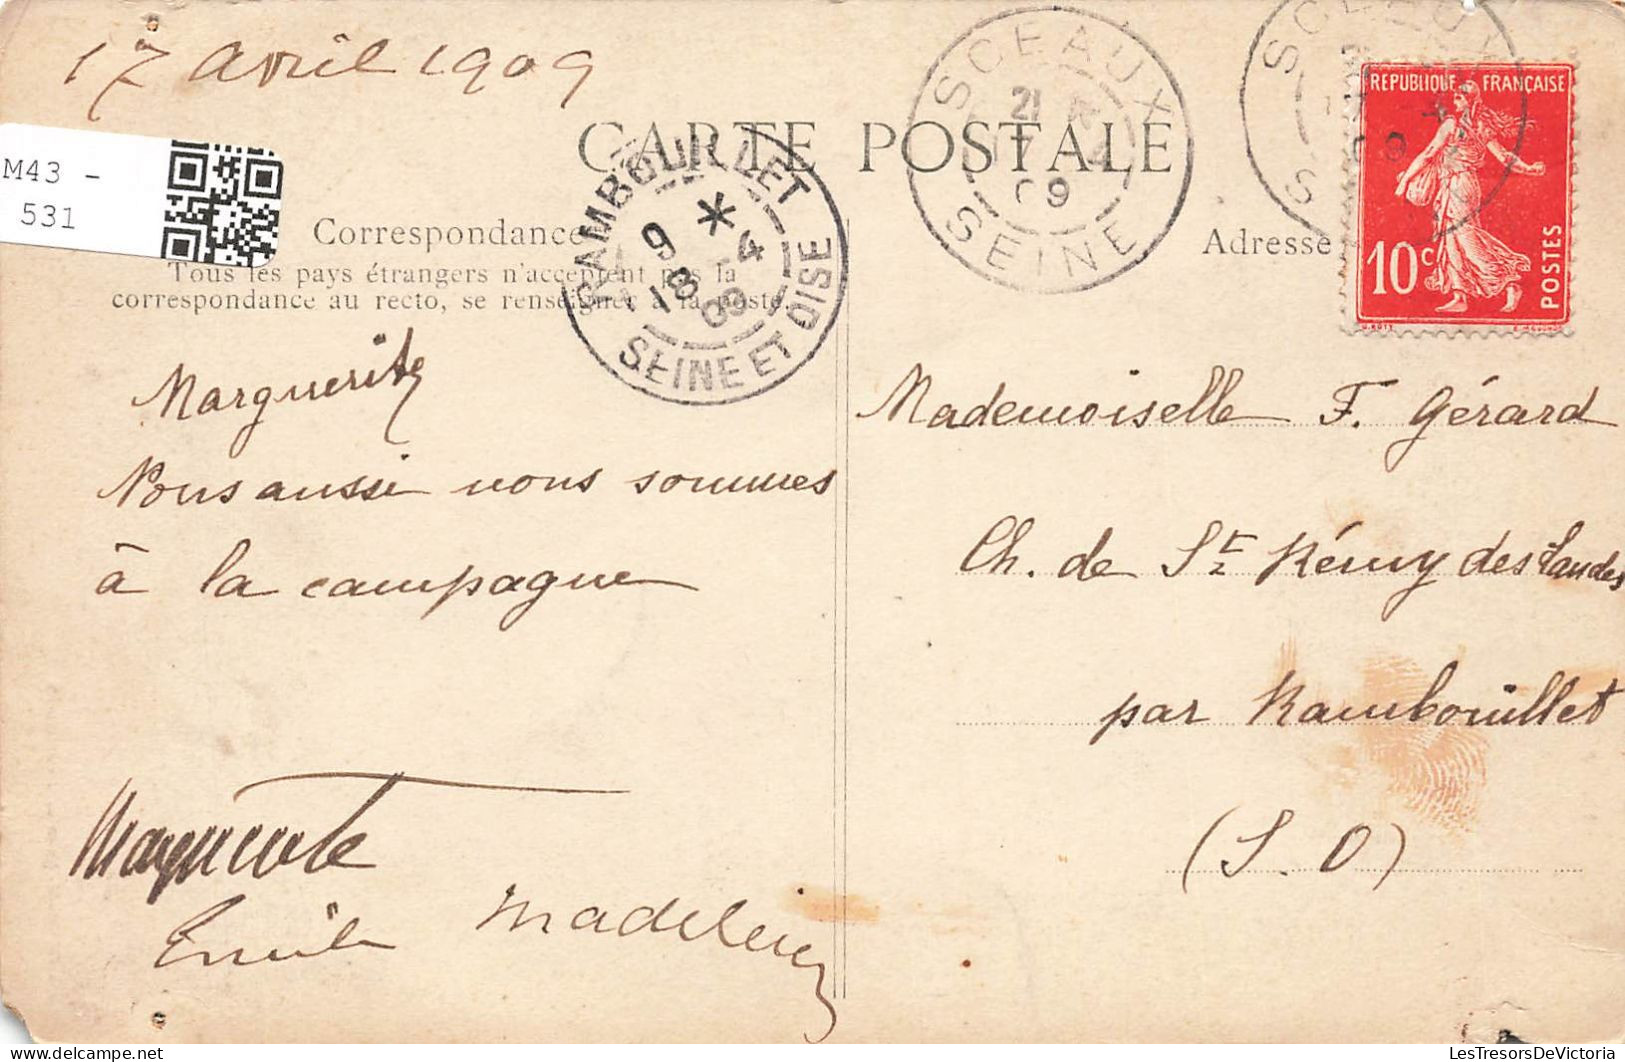 17 avril 1909
M43 -
531
CARTE POSTALE
Correspondance
Tous les pays étrangers n'acceptent pas la
correspondance au recto, se renseigner à la poste.
Adresse
RAMBOUILLET
9 *
18 -4
09
SEINE ET OISE
SCEAUX
21
17 4
09
SEINE
SCEAUX
REPUBLIQUE FRANÇAISE
10c
POSTES
Marguerite
Nous aussi nous sommes
à la campagne
Marguerite
Emile Madeleine
Mademoiselle F. Gérard
Ch. de St Rémy des Landes
par Rambouillet
(S. O)
LesTresorsDeVictoria